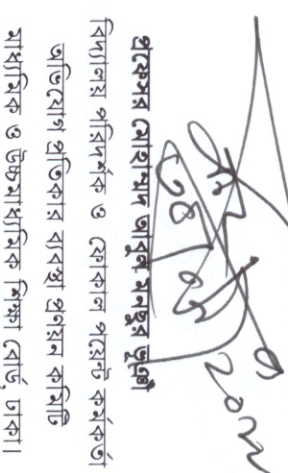 প্রফেসর মোহাম্মদ আবুল মনছুর ভূঞা
বিদ্যালয় পরিদর্শক ও ফোকাল পয়েন্ট কর্মকর্তা
অভিযোগ প্রতিকার ব্যবস্থা প্রণয়ন কমিটি
মাধ্যমিক ও উচ্চমাধ্যমিক শিক্ষা বোর্ড, ঢাকা।